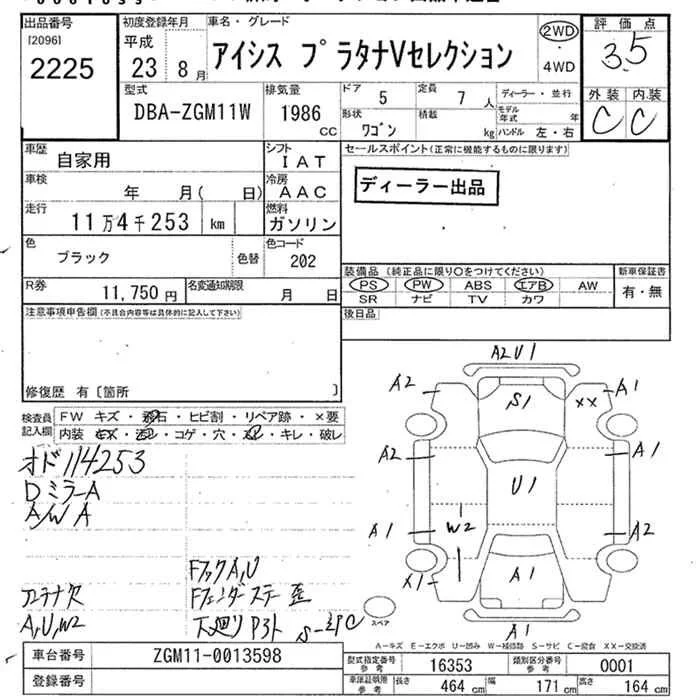 出品番号 [2096] 2225
初度登録年月 平成 23 8月
車名・グレード アイシス プラタナVセレクション
2WD ・ 4WD
評価点 3.5
外装 C 内装 C
型式 DBA-ZGM11W
排気量 1986 CC
ドア 5
定員 7人
ディーラー・並行
モデル年式 年
形状 ワゴン
積載 kg
ハンドル 左・右
車歴 自家用
シフト IAT
車検 年 月( 日)
冷房 AAC
走行 11万4千253 km
燃料 ガソリン
色 ブラック 色替
色コード 202
R券 11,750円
名変通知期限 月 日
セールスポイント(正常に機能するものに限ります)
ディーラー出品
装備品 (純正品に限り○をつけてください)
PS PW ABS エアB AW
SR ナビ TV カワ
新車保証書 有・無
後日品
注意事項申告欄 (不具合内容等は具体的に記入して下さい)
修復歴 有〔箇所 〕
検査員記入欄
FW キズ・飛石・ヒビ割・リペア跡・×要
内装 キズ・汚レ・コゲ・穴・スレ・キレ・破レ
オド114253
Dミラ-A
A/W A
FフックA,U
アンテナ欠
Fフェンダーステー歪
A,U,W2
下廻りP3ト S-錆C
A2U1
A2
S1
XX
A1
A2
A1
U1
A1
W2
A2
X1
A1
A1
スペア
A-キズ E-エクボ U-凹み W-補修跡 S-サビ C-腐食 XX-交換済
車台番号 ZGM11-0013598
登録番号
型式指定番号 参考 16353
類別区分番号 参考 0001
車庫証明用 参考 長さ 464 cm 幅 171 cm 高さ 164 cm